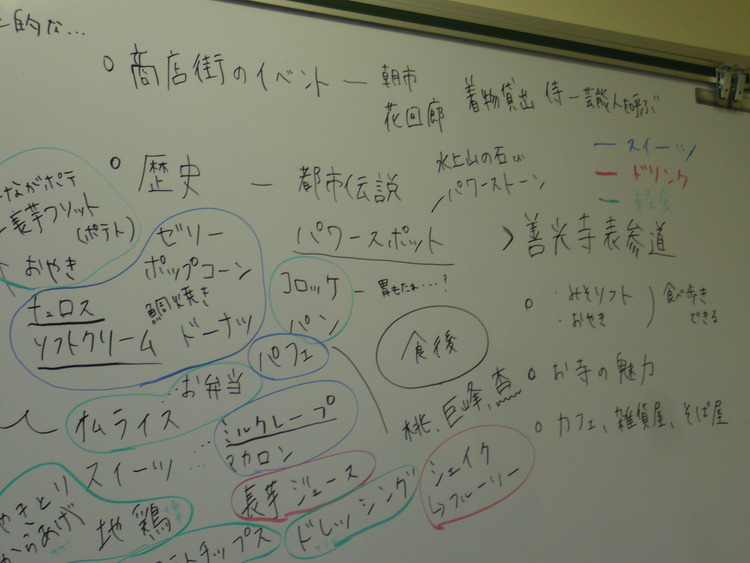 的な…
○ 商店街のイベント ― 朝市
花回廊
着物貸出 侍 ― 芸能人を呼ぶ
― スイーツ
― ドリンク
― 軽食
○ 歴史 ― 都市伝説
水上山の石
パワーストーン
パワースポット
〉善光寺表参道
ながポテ
長芋フリット
(ポテト)
おやき
ゼリー
ポップコーン
チュロス
鯛焼き
ソフトクリーム ドーナツ
コロッケ ― 胃もたれ…?
パン
パフェ
食後
○ ・みそソフト
・おやき
食べ歩き
できる
○ お寺の魅力
○ カフェ、雑貨屋、そば屋
桃、巨峰、杏
…お弁当
オムライス
ミルクレープ
マカロン
スイーツ …
長芋ジュース
シェイク
↳フルーツ
やきとり
からあげ
地鶏
ドレッシング
チップス